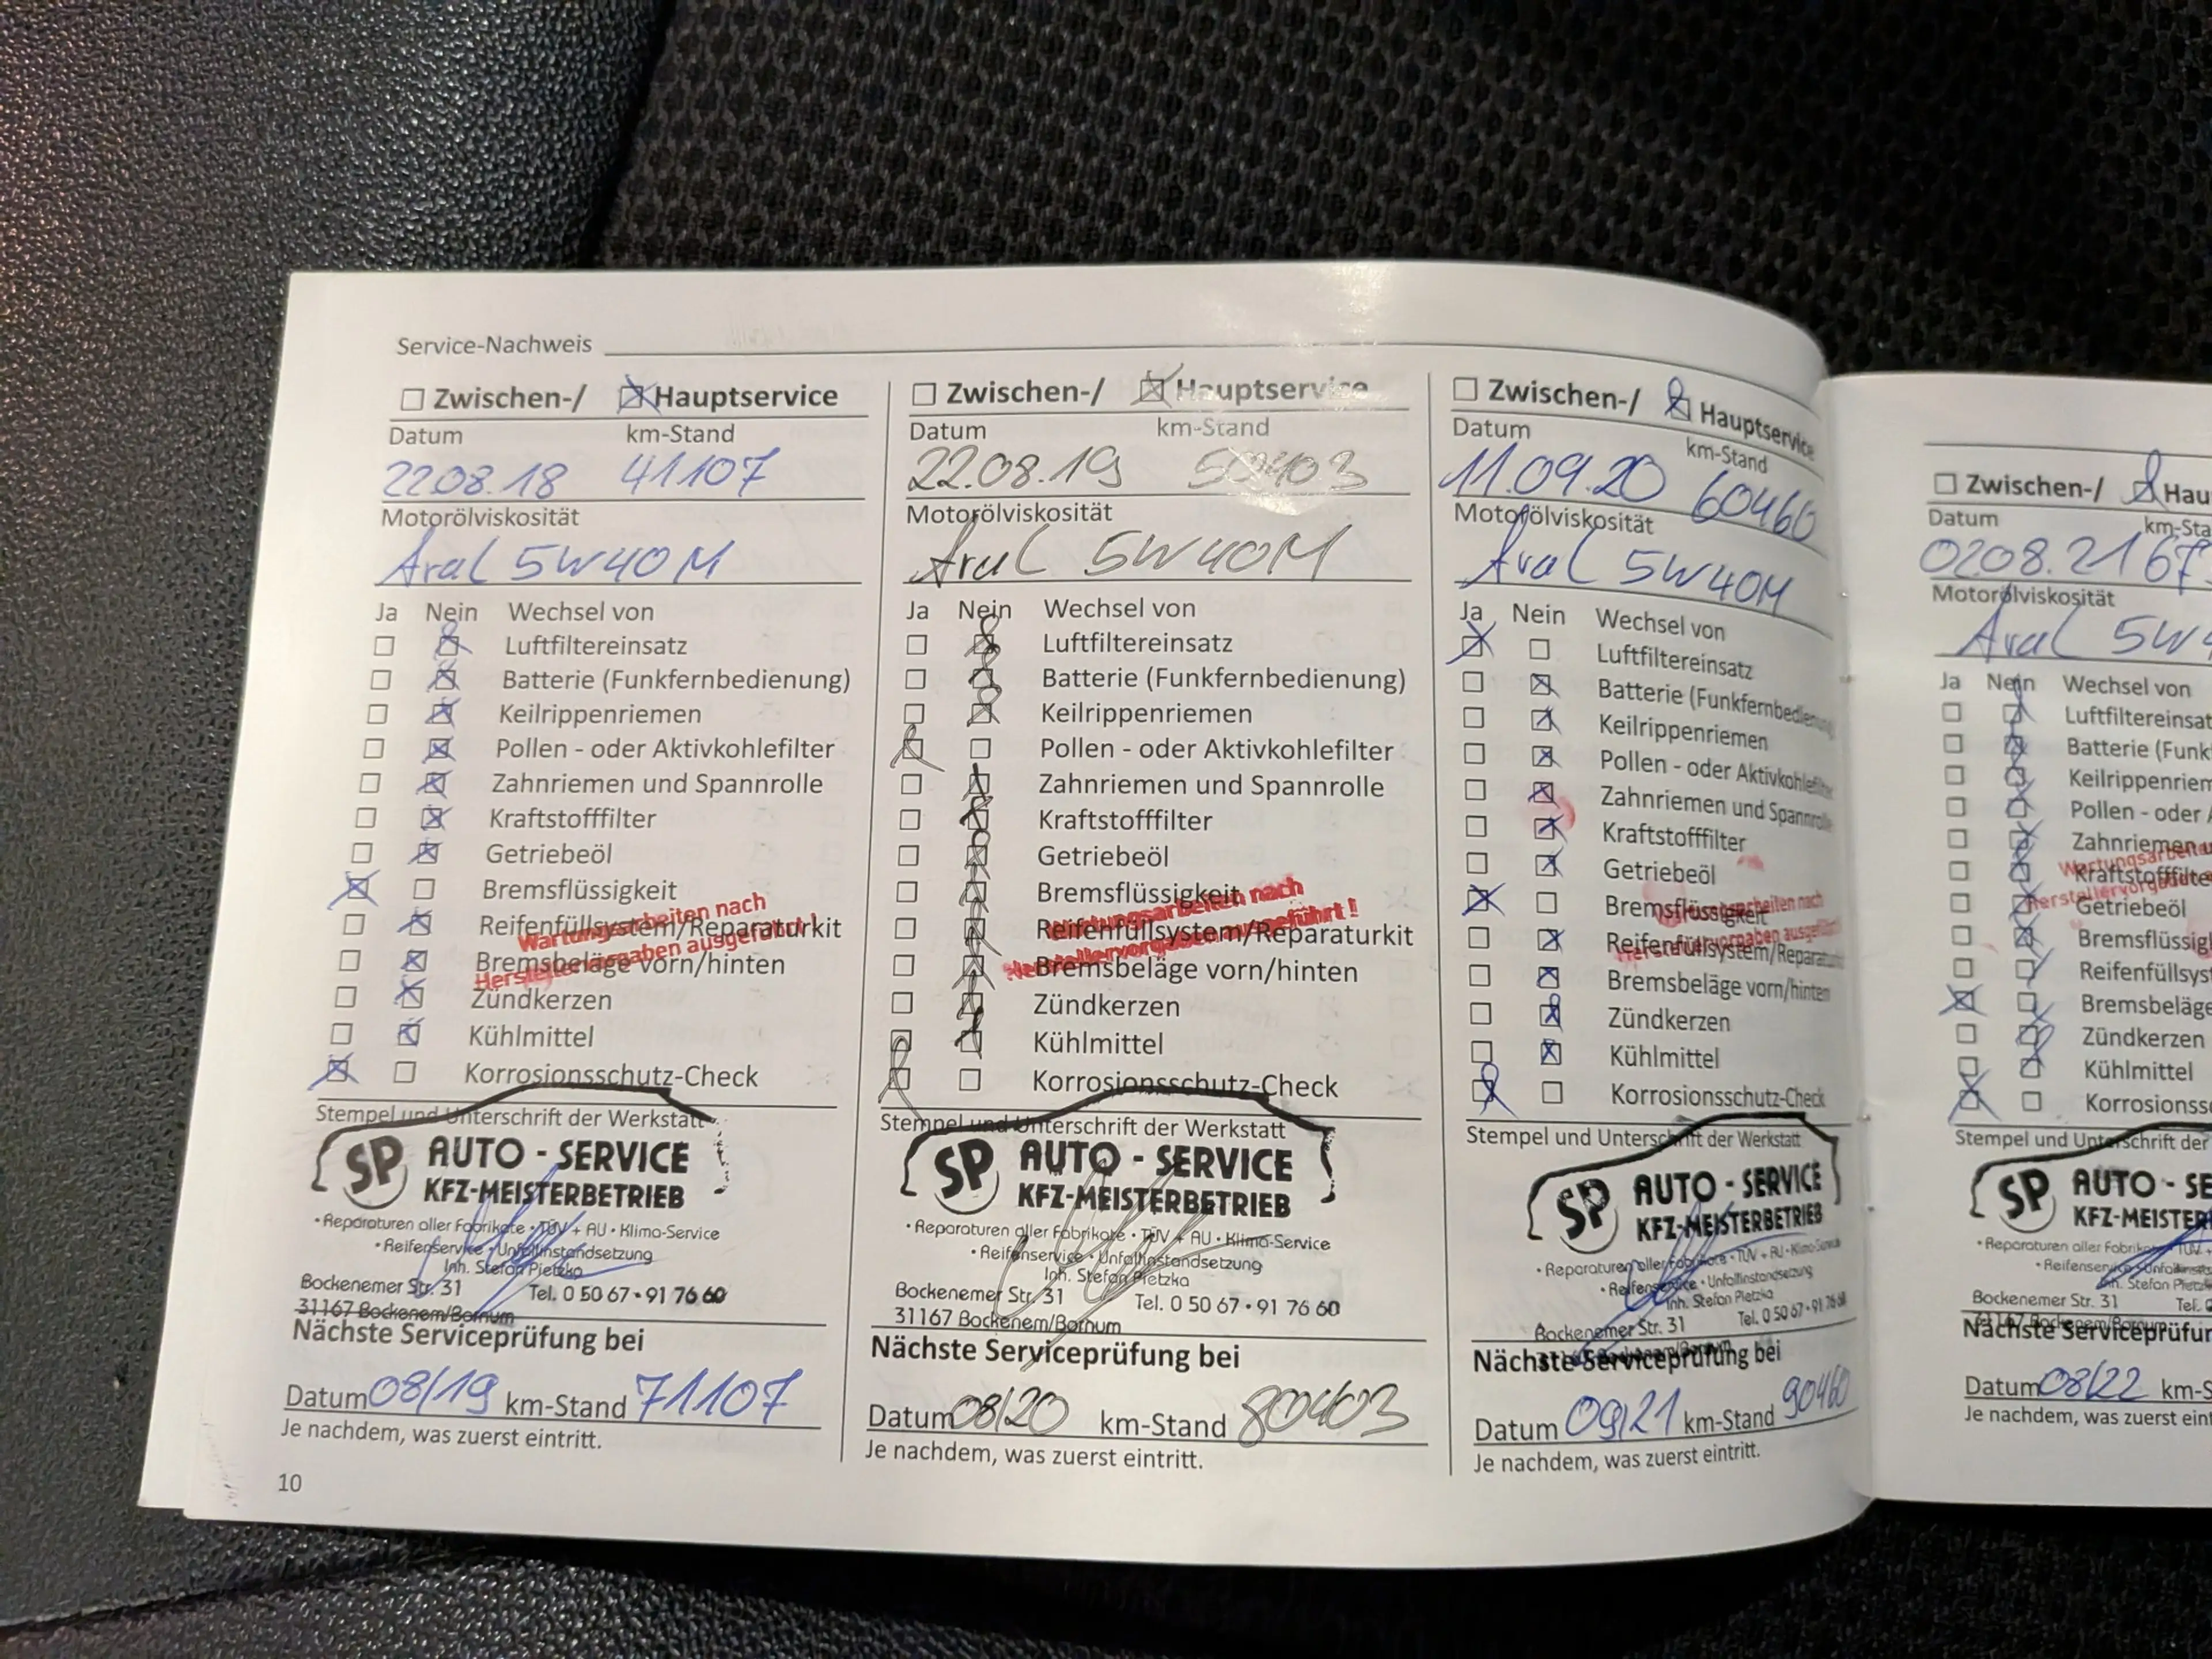 Service-Nachweis
☐ Zwischen-/ ☒ Hauptservice
Datum km-Stand
22.08.18 41107
Motorölviskosität
Aral 5W40M
Ja Nein Wechsel von
☐ ☒ Luftfiltereinsatz
☐ ☒ Batterie (Funkfernbedienung)
☐ ☒ Keilrippenriemen
☐ ☒ Pollen - oder Aktivkohlefilter
☐ ☒ Zahnriemen und Spannrolle
☐ ☒ Kraftstofffilter
☐ ☒ Getriebeöl
☒ ☐ Bremsflüssigkeit
☐ ☒ Reifenfüllsystem/Reparaturkit
☐ ☒ Bremsbeläge vorn/hinten
☐ ☒ Zündkerzen
☐ ☒ Kühlmittel
☒ ☐ Korrosionsschutz-Check
Wartungsarbeiten nach
Herstellervorgaben ausgeführt!
Stempel und Unterschrift der Werkstatt
SP AUTO - SERVICE
KFZ-MEISTERBETRIEB
• Reparaturen aller Fabrikate • TÜV + AU • Klima-Service
• Reifenservice • Unfallinstandsetzung
Inh. Stefan Pietzka
Bockenemer Str. 31 Tel. 0 50 67 • 91 76 60
31167 Bockenem/Bornum
Nächste Serviceprüfung bei
Datum 08/19 km-Stand 71107
Je nachdem, was zuerst eintritt.
10
☐ Zwischen-/ ☒ Hauptservice
Datum km-Stand
22.08.19 50403
Motorölviskosität
Aral 5W40M
Ja Nein Wechsel von
☐ ☒ Luftfiltereinsatz
☐ ☒ Batterie (Funkfernbedienung)
☐ ☒ Keilrippenriemen
☒ ☐ Pollen - oder Aktivkohlefilter
☐ ☒ Zahnriemen und Spannrolle
☐ ☒ Kraftstofffilter
☐ ☒ Getriebeöl
☐ ☒ Bremsflüssigkeit
☐ ☒ Reifenfüllsystem/Reparaturkit
☐ ☒ Bremsbeläge vorn/hinten
☐ ☒ Zündkerzen
☐ ☒ Kühlmittel
☒ ☐ Korrosionsschutz-Check
Wartungsarbeiten nach
Herstellervorgaben ausgeführt!
Stempel und Unterschrift der Werkstatt
SP AUTO - SERVICE
KFZ-MEISTERBETRIEB
• Reparaturen aller Fabrikate • TÜV + AU • Klima-Service
• Reifenservice • Unfallinstandsetzung
Inh. Stefan Pietzka
Bockenemer Str. 31 Tel. 0 50 67 • 91 76 60
31167 Bockenem/Bornum
Nächste Serviceprüfung bei
Datum 08/20 km-Stand 80403
Je nachdem, was zuerst eintritt.
☐ Zwischen-/ ☒ Hauptservice
Datum km-Stand
11.09.20 60460
Motorölviskosität
Aral 5W40M
Ja Nein Wechsel von
☒ ☐ Luftfiltereinsatz
☐ ☒ Batterie (Funkfernbedienung
☐ ☒ Keilrippenriemen
☐ ☒ Pollen - oder Aktivkohlefilter
☐ ☒ Zahnriemen und Spannrolle
☐ ☒ Kraftstofffilter
☐ ☒ Getriebeöl
☒ ☐ Bremsflüssigkeit
☐ ☒ Reifenfüllsystem/Reparaturkit
☐ ☒ Bremsbeläge vorn/hinten
☐ ☒ Zündkerzen
☐ ☒ Kühlmittel
☒ ☐ Korrosionsschutz-Check
Wartungsarbeiten nach
Herstellervorgaben ausgeführt
Stempel und Unterschrift der Werkstatt
SP AUTO - SERVICE
KFZ-MEISTERBETRIEB
• Reparaturen aller Fabrikate • TÜV + AU • Klima-Service
• Reifenservice • Unfallinstandsetzung
Inh. Stefan Pietzka
Bockenemer Str. 31 Tel. 0 50 67 • 91 76 60
Nächste Serviceprüfung bei
Datum 09/21 km-Stand 90460
Je nachdem, was zuerst eintritt.
☐ Zwischen-/ ☒ Hau
Datum km-Sta
02.08.21 67
Motorölviskosität
Aral 5W4
Ja Nein Wechsel von
☐ ☒ Luftfiltereinsat
☐ ☒ Batterie (Funk
☐ ☒ Keilrippenriem
☐ ☒ Pollen - oder A
☐ ☒ Zahnriemen u
☐ ☒ Kraftstofffilte
☐ ☒ Getriebeöl
☐ ☒ Bremsflüssig
☐ ☒ Reifenfüllsys
☒ ☐ Bremsbeläge
☐ ☒ Zündkerzen
☐ ☒ Kühlmittel
☒ ☐ Korrosionss
Wartungsarbeite
Herstellervorga
Stempel und Unterschrift der
SP AUTO - SE
KFZ-MEISTER
• Reparaturen aller Fabrikate • TÜV +
• Reifenservice • Unfallins
Inh. Stefan Pietz
Bockenemer Str. 31 Tel. 0
31167 Bockenem/Bornum
Nächste Serviceprüfun
Datum 08/22 km-S
Je nachdem, was zuerst ein